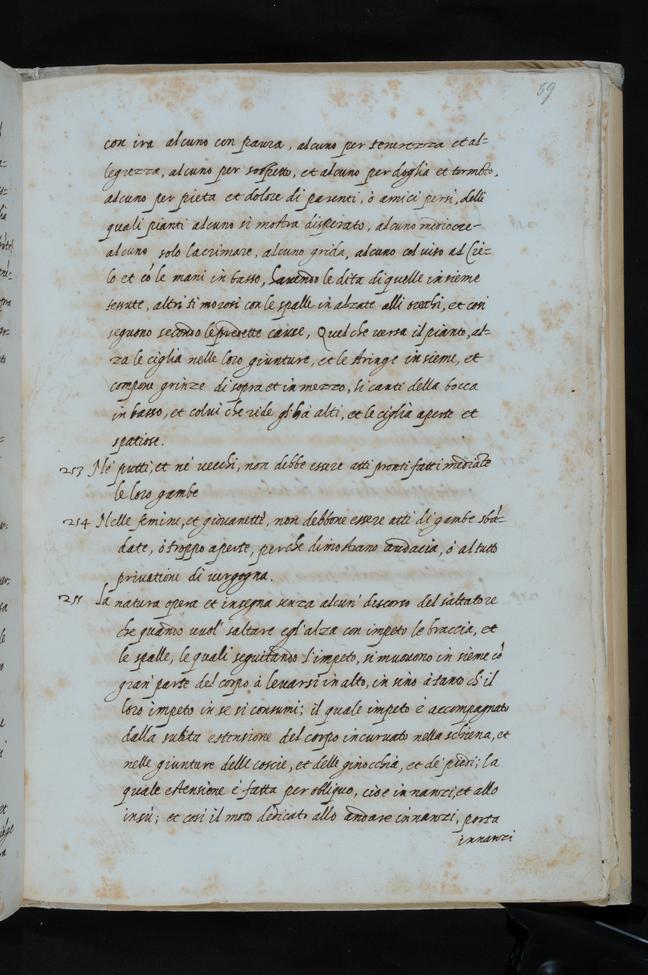 59
con ira alcuno con paura, alcuno per tenerezza et al-
legrezza, alcuno per sospetto, et alcuno per doglia et tormẽto,
alcuno per pieta et dolore di parenti, ò amici persi, delli
quali pianti alcuno si mostra disperato, alcuno mediocre-
alcuno solo lacrimare, alcuno grida, alcuno col uiso al Cie-
lo et cõ le mani in basso, hauendo le dita di quelle insieme
tessute, altri ti morosi con le spalle in alzate alli orechi, et cosi
seguono secondo le predette cause, Quel che uersa il pianto, al-
za le ciglia nelle loro giunture, et le stringe insieme, et
compone grinze di sopra et in mezzo, li canti della bocca
in basso, et colui che ride gli hà alti, et le ciglia aperte et
spatiose.
253 Ne' putti, et ne' uecchi, non debbe essere atti pronti fatti mediãte
le loro gambe
254 Nelle femine, et giouanetti, non debbone essere atti di gambe sbã-
date, ò troppo aperte, perche dimostrano audacia, ò al tutto
priuatione di uergogna.
255 La natura opera et insegna senza alcun' discorso del saltatore
che quando uuol' saltare egl'alza con impeto le braccia, et
le spalle, le quali seguitando l'impeto, si muouono in sieme cõ
gran' parte del corpo à leuarsi in alto, in sino à tanto ch'il
loro impeto in se si consumi; il quale impeto è accompagnato
dalla subita estensione del corpo incuruato nella schiena, et
nelle giunture delle coscie, et delle ginocchia, et de' piedi; la
quale estensione è fatta per obliquo, cioe in nanzi, et allo
insù; et cosi il moto dedicato allo andare innanzi, porta
innanzi